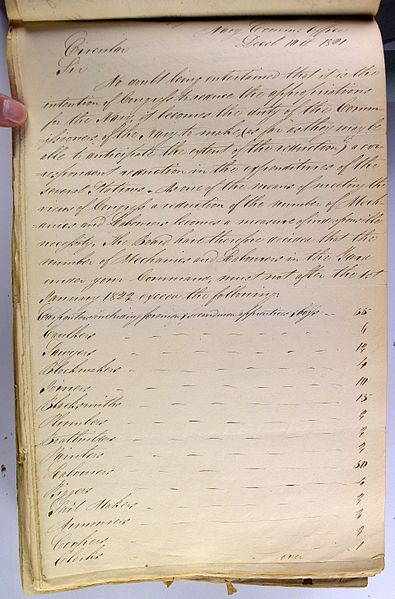 Navy Comms Office
Decr 10th 1821
Circular
Sir
No doubt being entertained that it is the
intention of Congress to reduce the appropriations
for the Navy, it becomes the duty of the Comm-
issioners of the Navy to make, as far as they may be
able to anticipate the extent of the reduction, a cor-
respondent reduction in the expenditures of the
several Stations. As one of the means of meeting the
views of Congress a reduction of the number of Mech-
anics and Labourers becomes a measure of indispensible
necessity. The Board have therefore decided that the
number of Mechanics and Labourers in the Yard
under your Command, must not after the 1st
January 1822 exceed the following.
Carpenters including foreman, apprentices & boys 55
Caulkers 4
Sawyers 12
Blockmakers 4
Joiners 10
Blacksmiths 15
Plumbers 2
Boatbuilders 2
Painters 2
Labourers 30
Riggers
Sail Makers 2
Armourers 2
Coopers 2
Clerks 1
over